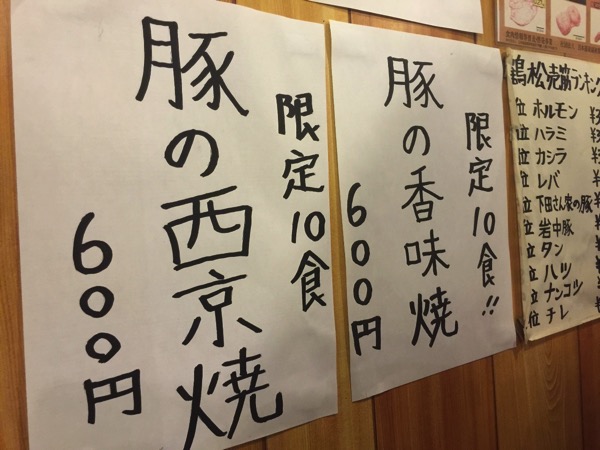 限定10食
豚の西京焼
600円
限定10食!!
豚の香味焼
600円
鶏松売筋ランキング
位 ホルモン ¥
位 ハラミ ¥
位 カシラ ¥
位 レバ ¥
位 下田さん家の豚 ¥
位 岩中豚 ¥
位 タン ¥
位 ハツ ¥
位 ナンコツ ¥
位 チレ ¥